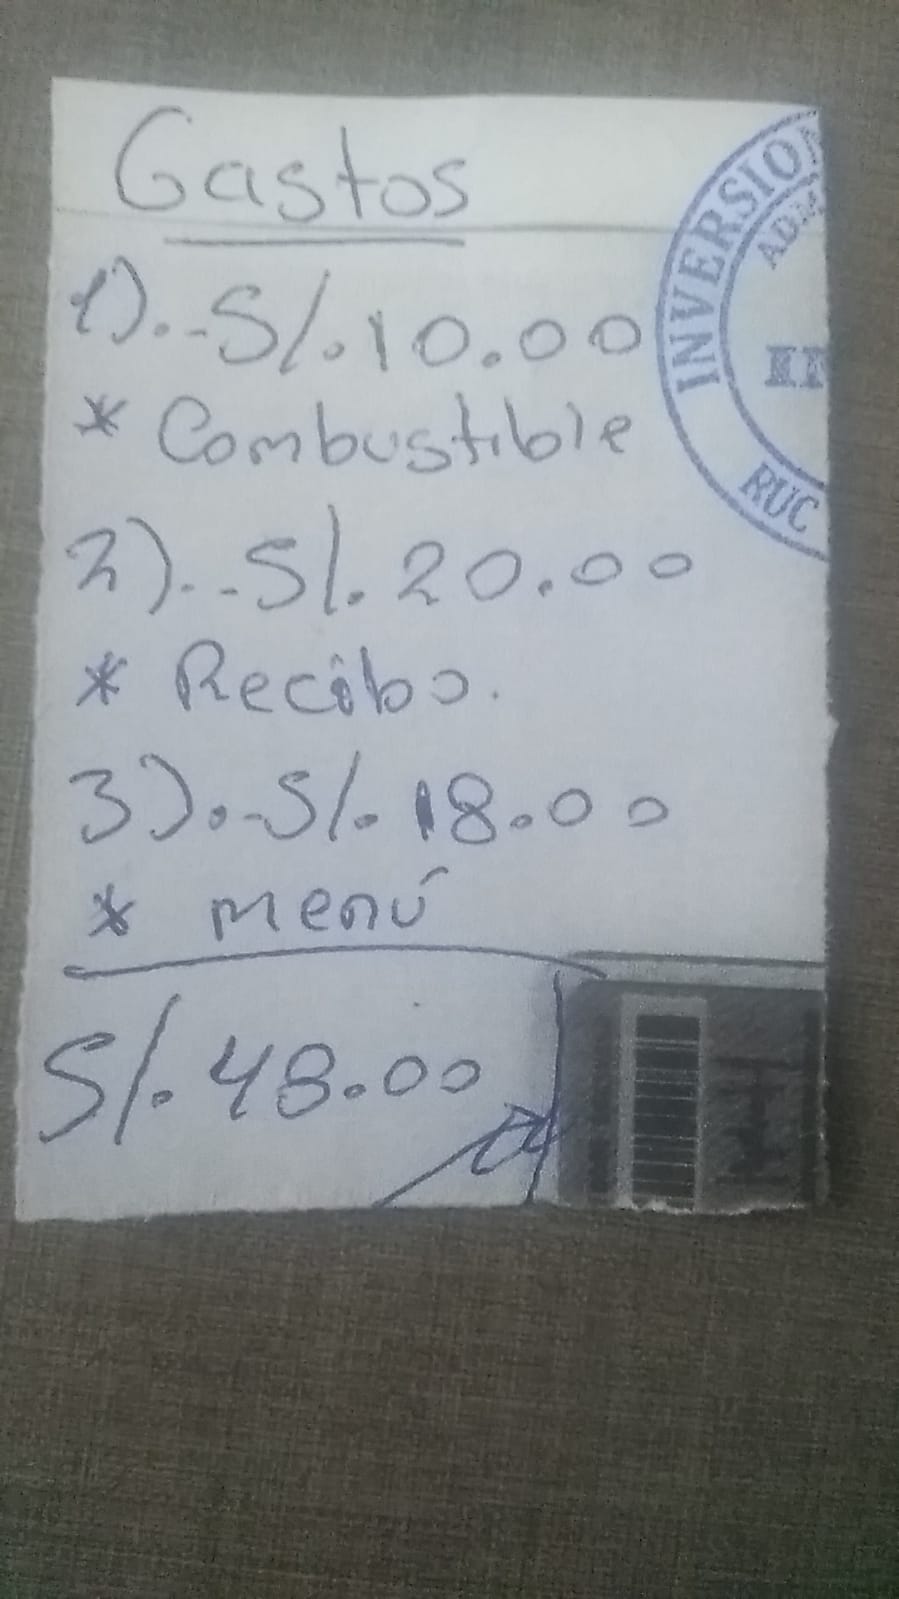 Gastos
1).-S/.10.00
* Combustible
2).-S/.20.00
* Recibo.
3).-S/.18.00
* menú
S/.48.00
INVERSION
ADM
RUC